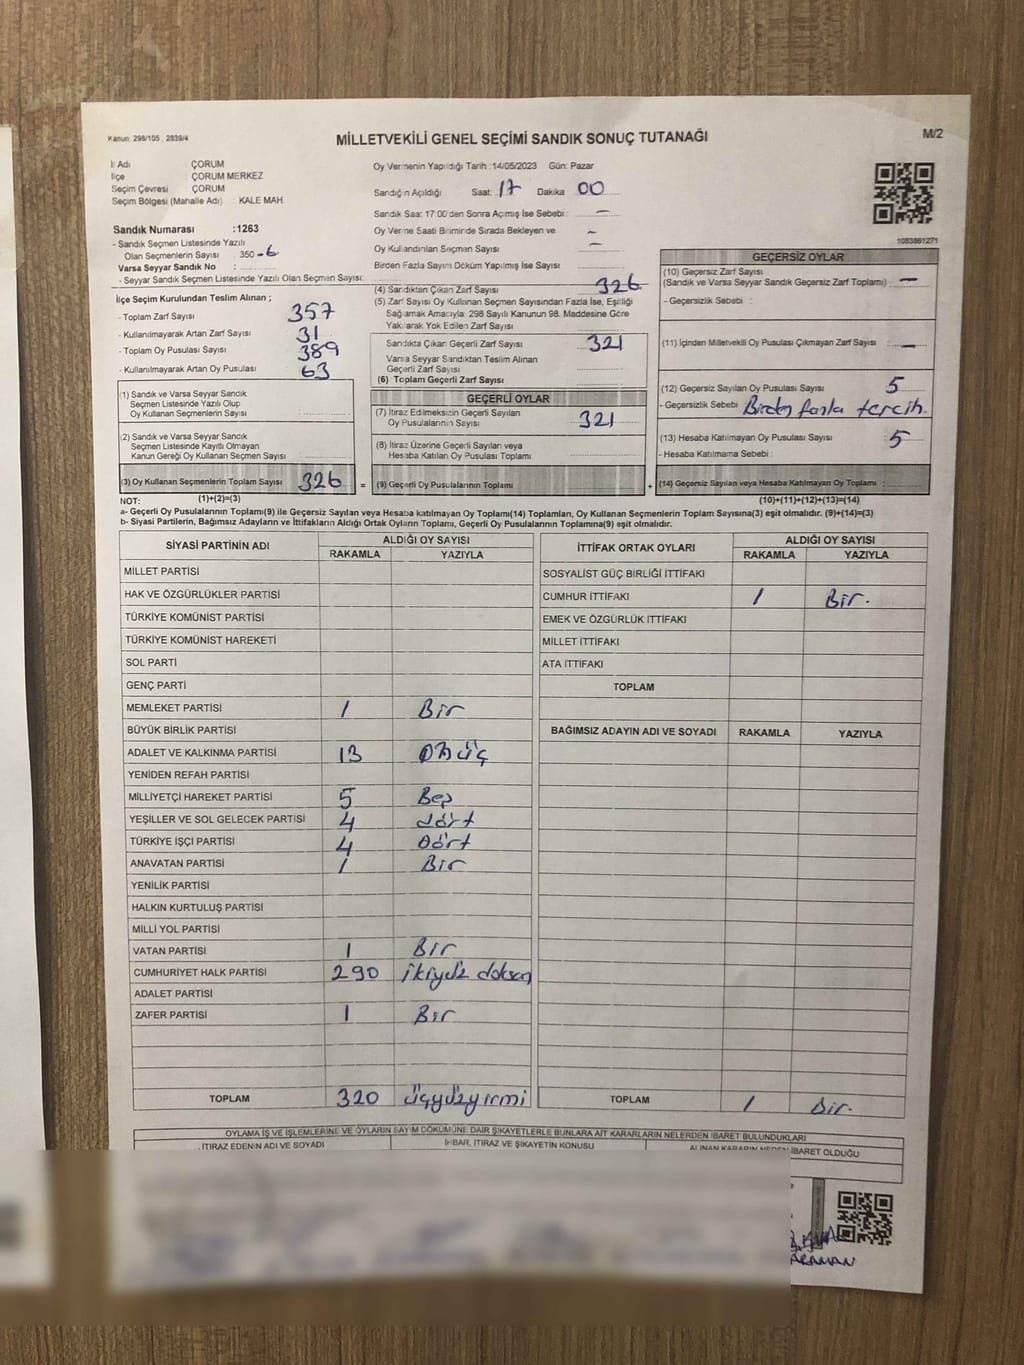 Kanun: 298/105 , 2839/4
MİLLETVEKİLİ GENEL SEÇİMİ SANDIK SONUÇ TUTANAĞI
M/2
İl Adı : ÇORUM
İlçe : ÇORUM MERKEZ
Seçim Çevresi : ÇORUM
Seçim Bölgesi (Mahalle Adı) : KALE MAH.
Oy Vermenin Yapıldığı Tarih :14/05/2023 Gün: Pazar
Sandığın Açıldığı Saat: 17 Dakika 00
Sandık Saat: 17.00'den Sonra Açılmış İse Sebebi : –
Oy Verme Saati Bitiminde Sırada Bekleyen ve –
Oy Kullandırılan Seçmen Sayısı –
Birden Fazla Sayım Döküm Yapılmış İse Sayısı
1083861271
Sandık Numarası :1263
- Sandık Seçmen Listesinde Yazılı
Olan Seçmenlerin Sayısı : 350 -6
Varsa Seyyar Sandık No :
- Seyyar Sandık Seçmen Listesinde Yazılı Olan Seçmen Sayısı:
İlçe Seçim Kurulundan Teslim Alınan ;
- Toplam Zarf Sayısı : 357
- Kullanılmayarak Artan Zarf Sayısı : 31
- Toplam Oy Pusulası Sayısı : 389
- Kullanılmayarak Artan Oy Pusulası : 63
(1) Sandık ve Varsa Seyyar Sandık
Seçmen Listesinde Yazılı Olup
Oy Kullanan Seçmenlerin Sayısı :
(2) Sandık ve Varsa Seyyar Sandık
Seçmen Listesinde Kayıtlı Olmayan
Kanun Gereği Oy Kullanan Seçmen Sayısı :
(3) Oy Kullanan Seçmenlerin Toplam Sayısı : 326
(4) Sandıktan Çıkan Zarf Sayısı 326
(5) Zarf Sayısı Oy Kullanan Seçmen Sayısından Fazla İse, Eşitliği
Sağlamak Amacıyla 298 Sayılı Kanunun 98. Maddesine Göre
Yakılarak Yok Edilen Zarf Sayısı :
Sandıkta Çıkan Geçerli Zarf Sayısı : 321
Varsa Seyyar Sandıktan Teslim Alınan
Geçerli Zarf Sayısı :
(6) Toplam Geçerli Zarf Sayısı :
GEÇERLİ OYLAR
(7) İtiraz Edilmeksizin Geçerli Sayılan
Oy Pusulalarının Sayısı : 321
(8) İtiraz Üzerine Geçerli Sayılan veya
Hesaba Katılan Oy Pusulası Toplamı :
= (9) Geçerli Oy Pusulalarının Toplamı :
GEÇERSİZ OYLAR
(10) Geçersiz Zarf Sayısı
(Sandık ve Varsa Seyyar Sandık Geçersiz Zarf Toplamı) : –
- Geçersizlik Sebebi :
(11) İçinden Milletvekili Oy Pusulası Çıkmayan Zarf Sayısı : –
(12) Geçersiz Sayılan Oy Pusulası Sayısı : 5
- Geçersizlik Sebebi : Birden fazla tercih.
(13) Hesaba Katılmayan Oy Pusulası Sayısı : 5
- Hesaba Katılmama Sebebi :
+ (14) Geçersiz Sayılan veya Hesaba Katılmayan Oy Toplamı :
NOT: (1)+(2)=(3) (10)+(11)+(12)+(13)=(14)
a- Geçerli Oy Pusulalarının Toplamı(9) ile Geçersiz Sayılan veya Hesaba katılmayan Oy Toplamı(14) Toplamları, Oy Kullanan Seçmenlerin Toplam Sayısına(3) eşit olmalıdır. (9)+(14)=(3)
b- Siyasi Partilerin, Bağımsız Adayların ve İttifakların Aldığı Ortak Oyların Toplamı, Geçerli Oy Pusulalarının Toplamına(9) eşit olmalıdır.
SİYASİ PARTİNİN ADI ALDIĞI OY SAYISI
RAKAMLA YAZIYLA
MİLLET PARTİSİ
HAK VE ÖZGÜRLÜKLER PARTİSİ
TÜRKİYE KOMÜNİST PARTİSİ
TÜRKİYE KOMÜNİST HAREKETİ
SOL PARTİ
GENÇ PARTİ
MEMLEKET PARTİSİ 1 Bir
BÜYÜK BİRLİK PARTİSİ
ADALET VE KALKINMA PARTİSİ 13 Onüç
YENİDEN REFAH PARTİSİ
MİLLİYETÇİ HAREKET PARTİSİ 5 Beş
YEŞİLLER VE SOL GELECEK PARTİSİ 4 dört
TÜRKİYE İŞÇİ PARTİSİ 4 Dört
ANAVATAN PARTİSİ 1 Bir
YENİLİK PARTİSİ
HALKIN KURTULUŞ PARTİSİ
MİLLİ YOL PARTİSİ
VATAN PARTİSİ 1 Bir
CUMHURİYET HALK PARTİSİ 290 ikiyüz doksan
ADALET PARTİSİ
ZAFER PARTİSİ 1 Bir
TOPLAM 320 üçyüzyirmi
İTTİFAK ORTAK OYLARI ALDIĞI OY SAYISI
RAKAMLA YAZIYLA
SOSYALİST GÜÇ BİRLİĞİ İTTİFAKI
CUMHUR İTTİFAKI 1 Bir.
EMEK VE ÖZGÜRLÜK İTTİFAKI
MİLLET İTTİFAKI
ATA İTTİFAKI
TOPLAM
BAĞIMSIZ ADAYIN ADI VE SOYADI RAKAMLA YAZIYLA
TOPLAM 1 Bir.
OYLAMA İŞ VE İŞLEMLERİNE VE OYLARIN SAYIM DÖKÜMÜNE DAİR ŞİKAYETLERLE BUNLARA AİT KARARLARIN NELERDEN İBARET BULUNDUKLARI
İTİRAZ EDENİN ADI VE SOYADI İHBAR, İTİRAZ VE ŞİKAYETİN KONUSU ALINAN KARARIN NEDEN İBARET OLDUĞU